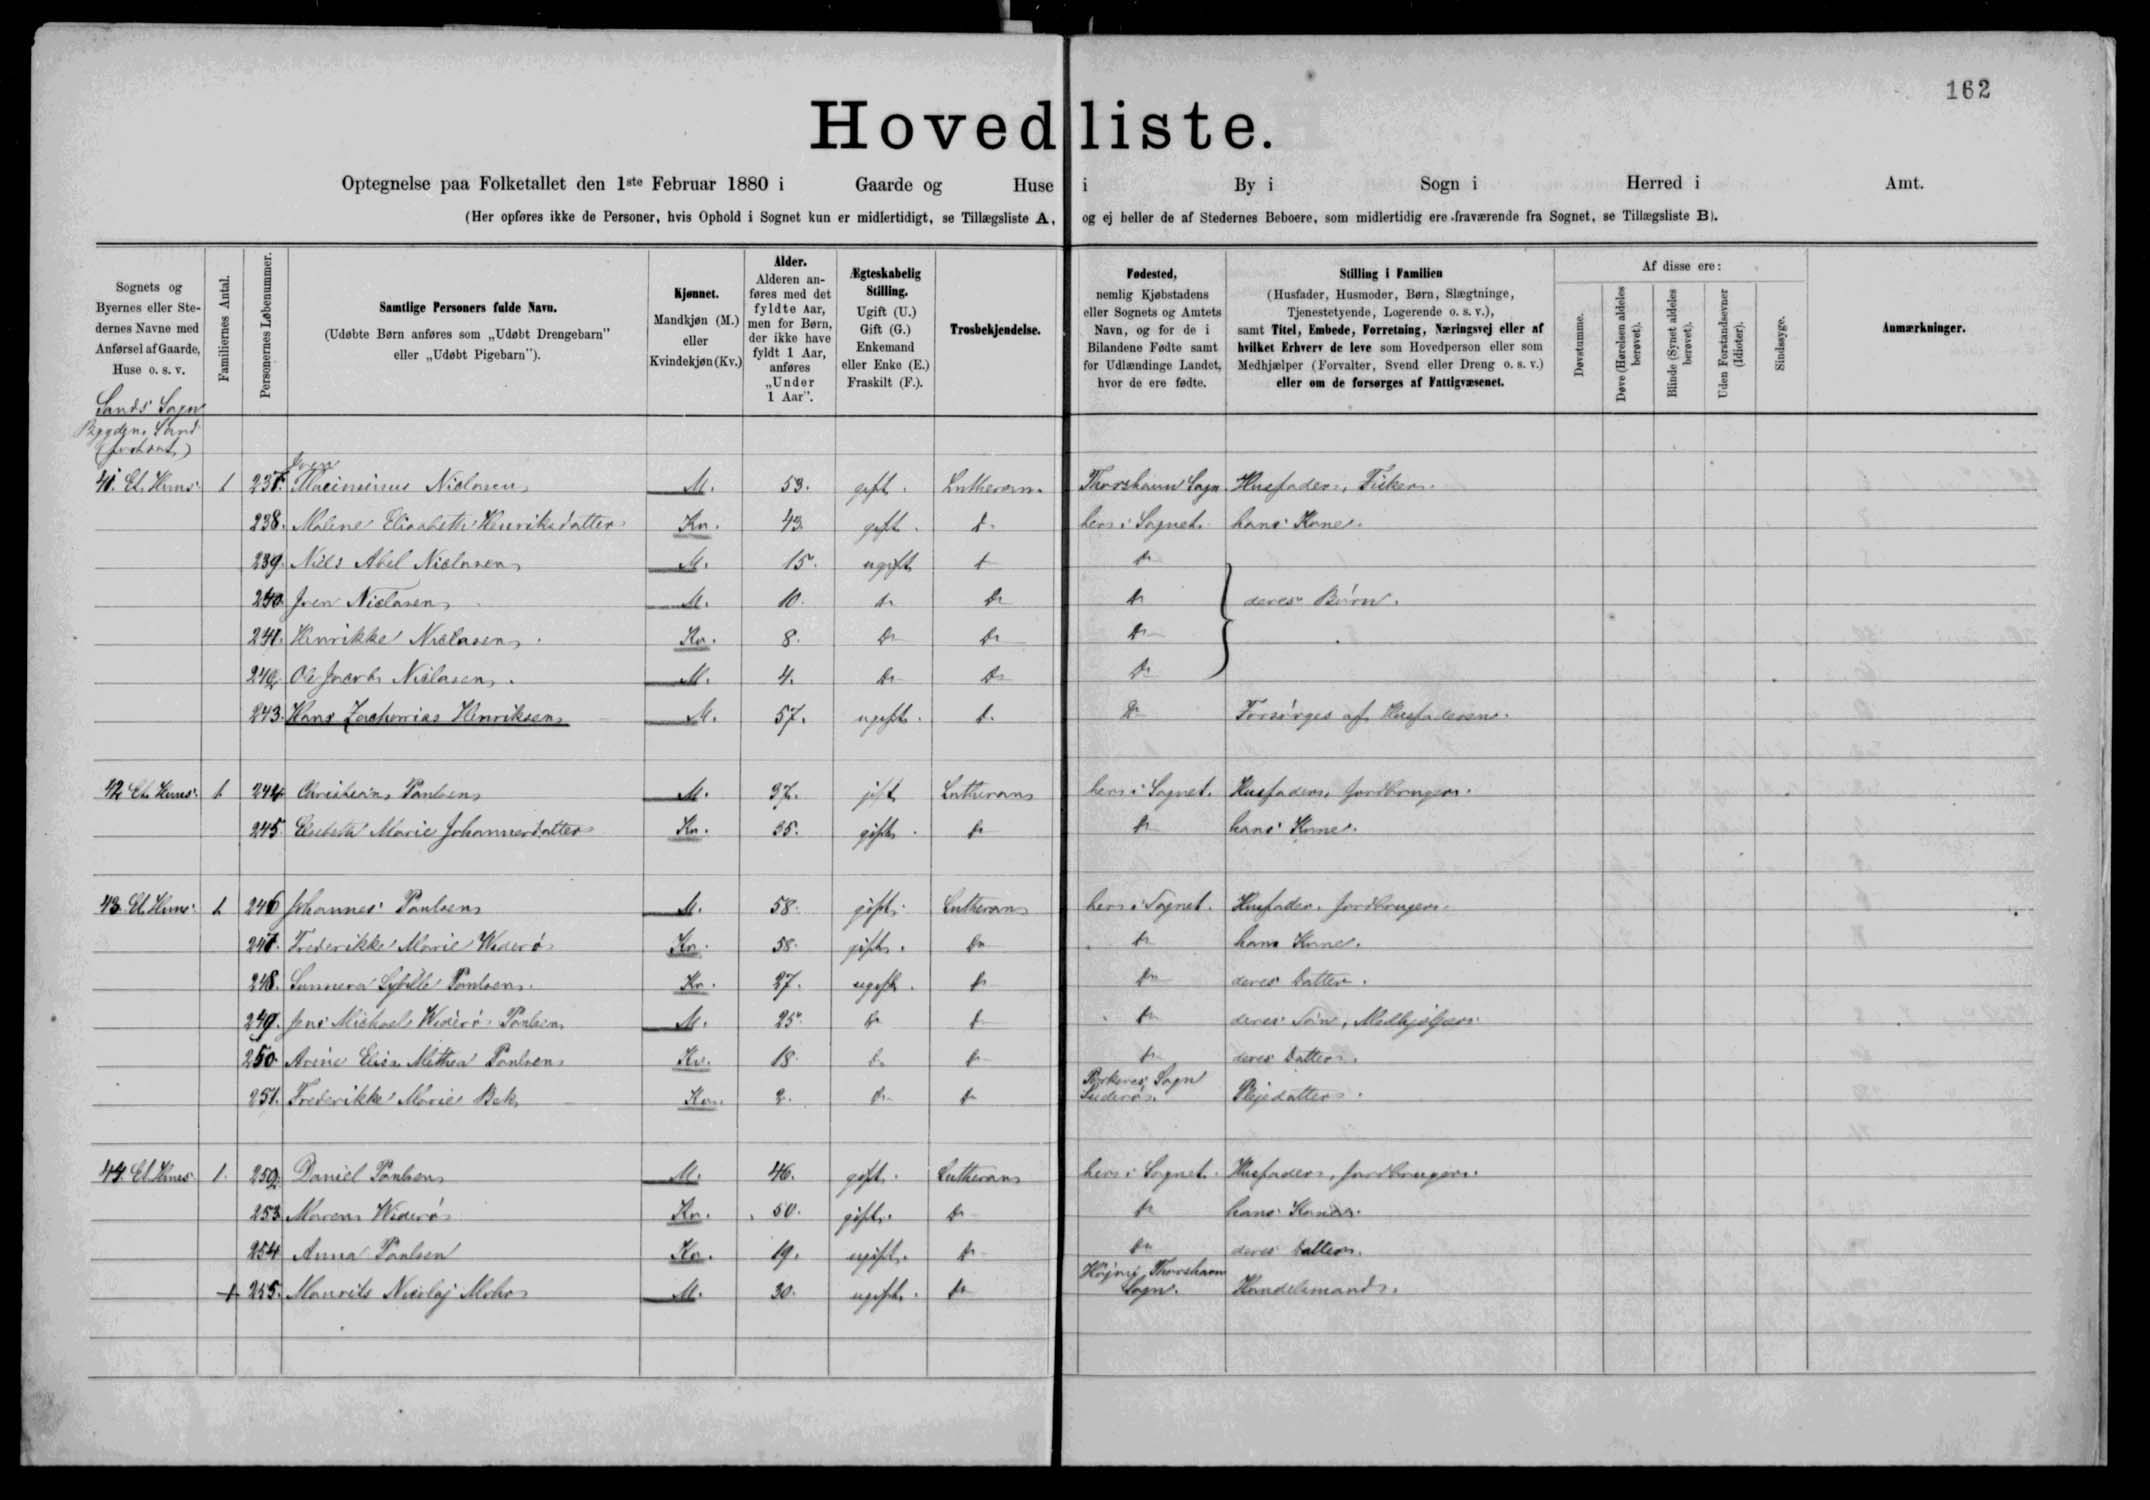 162
Hovedliste.
Optegnelse paa Folketallet den 1ste Februar 1880 i Gaarde og Huse i By i Sogn i Herred i Amt.
(Her opføres ikke de Personer, hvis Ophold i Sognet kun er midlertidigt, se Tillægsliste A, og ej heller de af Stedernes Beboere, som midlertidig ere fraværende fra Sognet, se Tillægsliste B).
Sognets og Byernes eller Stedernes Navne med Anførsel af Gaarde, Huse o. s. v.
Familiernes Antal.
Personernes Løbenummer.
Samtlige Personers fulde Navn.
(Udøbte Børn anføres som „Udøbt Drengebarn" eller „Udøbt Pigebarn").
Kjønnet.
Mandkjøn (M.) eller Kvindekjøn (Kv.)
Alder.
Alderen anføres med det fyldte Aar, men for Børn, der ikke have fyldt 1 Aar, anføres „Under 1 Aar".
Ægteskabelig Stilling.
Ugift (U.) Gift (G.) Enkemand eller Enke (E.) Fraskilt (F.).
Trosbekjendelse.
Fødested,
nemlig Kjøbstadens eller Sognets og Amtets Navn, og for de i Bilandene Fødte samt for Udlændinge Landet, hvor de ere fødte.
Stilling i Familien
(Husfader, Husmoder, Børn, Slægtninge, Tjenestetyende, Logerende o. s. v.),
samt Titel, Embede, Forretning, Næringsvej eller af hvilket Erhverv de leve som Hovedperson eller som Medhjælper (Forvalter, Svend eller Dreng o. s. v.)
eller om de forsørges af Fattigvæsenet.
Af disse ere:
Døvstumme.
Døve (Hørelsen aldeles berøvet).
Blinde (Synet aldeles berøvet).
Uden Forstandsevner (Idioter).
Sindssyge.
Anmærkninger.
Sands Sogn
Bygden Sand
(fortsat)
Joen
41. Et Huus. 1 237. Maximinus Niclasen M. 53. gift. Lutheran. Thorshavn Sogn Husfader, Fisker.
238. Malene Elisabeth Henriksdatter Kv. 43. gift. do her i Sognet. hans Kone.
239. Niels Abel Niclasen M. 15. ugift do do
240. Joen Niclasen M. 10. do do do deres Børn.
241. Henrikke Niclasen. Kv. 8. do do do
242. Ole Jacob Niclasen. M. 4. do do do
243. Hans Zacharias Henriksen M. 57. ugift. do do Forsørges af Husfaderen.
42. Et Huus. 1 244. Christian Poulsen M. 37. gift Lutheran her i Sognet. Husfader, Jordbruger.
245. Elsebeth Marie Johannesdatter Kv. 35. gift. do do hans Kone.
43. Et Huus. 1 246 Johannes Poulsen M. 58. gift. Lutheran her i Sognet. Husfader. Jordbruger.
247. Frederikke Marie Widerø Kv. 58. gift. do do hans Kone.
248. Sunneva Sybille Poulsen. Kv. 27. ugift. do do deres Datter.
249. Jens Michael Widerø Poulsen M. 25. do do do deres Søn, Medhjælper.
250 Kv. 18 do do do deres Datter.
251. Frederikke Marie Bek Kv. 2. do do Porkeres Sogn Suderø. Plejedatter.
44. Et Huus. 1. 252. Daniel Poulsen M. 46. gift. Lutheran her i Sognet. Husfader, Jordbruger.
253. Maren Widerø Kv. 50. gift. do do hans Kone.
254. Anna Poulsen Kv. 19. ugift. do do deres Datter.
+ 255. Maurits Nicolaj Mohr M. 30. ugift. do Thorshavn Sogn. Handelsmand.